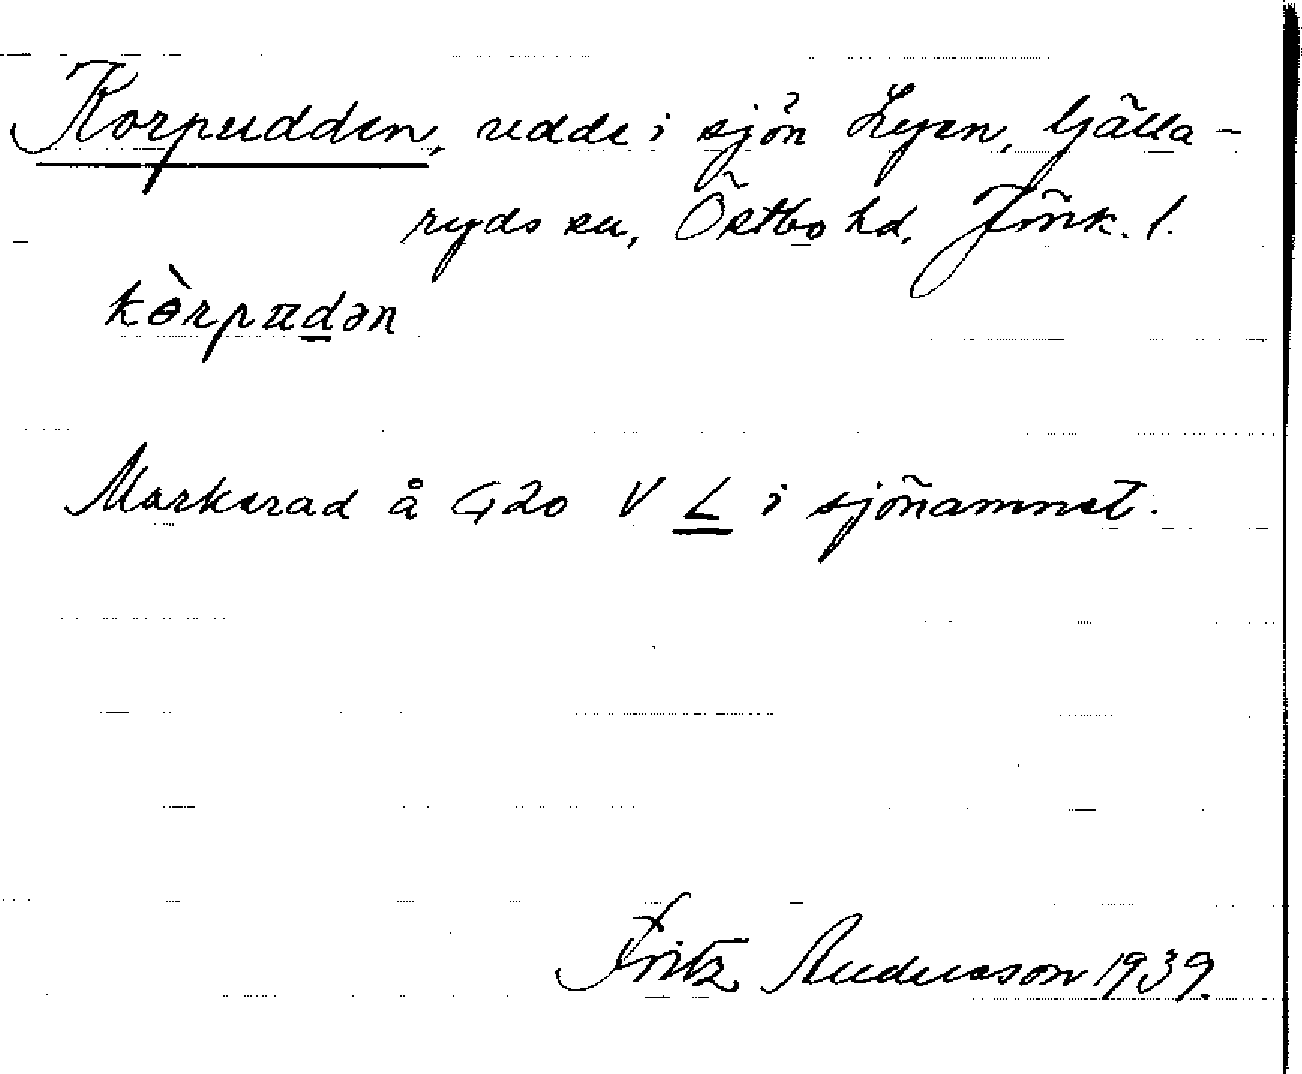 Korpudden, udde i sjön Lyen, Gälla-
ryds sn, Östbo hd, Jönk. l.
kòrpudən
Markerad å G20 V L i sjönamnet.
Fritz Andersson 1939.